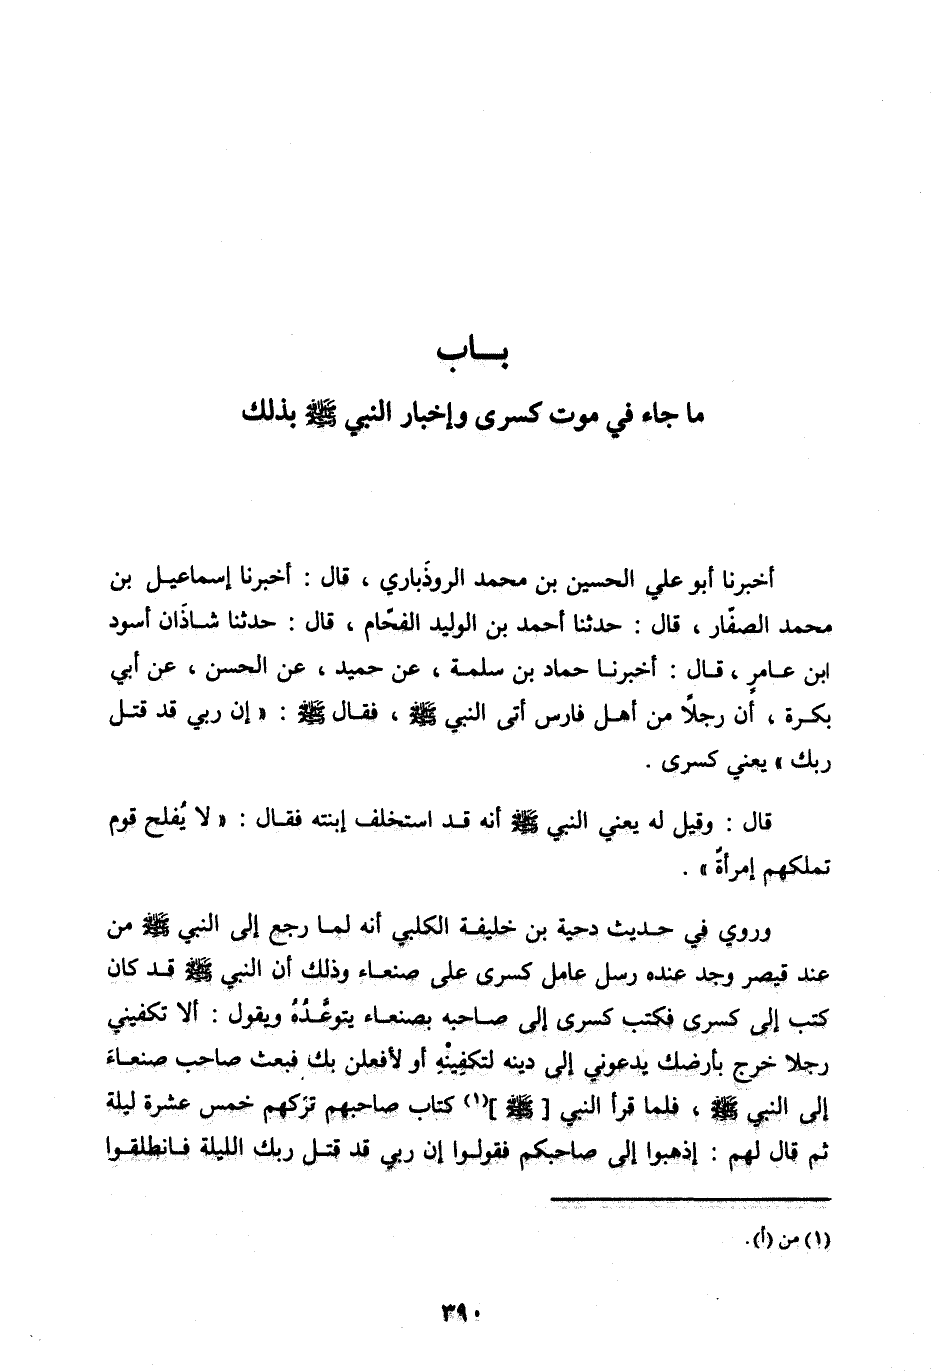 بـــاب
ما جاء في موت كسرى وإخبار النبي ﷺ بذلك
أخبرنا أبو علي الحسين بن محمد الروذَباري ، قال : أخبرنا إسماعيـل بن
محمد الصفّار ، قال : حدثنا أحمد بن الوليد الفحّام ، قال : حدثنا شـاذَان أسود
ابن عـامرٍ ، قـال : أخبرنـا حماد بن سلمـة ، عن حميد ، عن الحسن ، عن أبي
بكـرة ، أن رجلًا من أهـل فارس أتى النبي ﷺ ، فقـال ﷺ : « إن ربي قد قتـل
ربك » يعني كسرى .
قال : وقيل له يعني النبي ﷺ أنه قـد استخلف إبنته فقـال : « لا يُفلح قوم
تملكهم إمرأةٌ » .
وروي في حـديث دحية بن خليفـة الكلبي أنه لمـا رجع إلى النبي ﷺ من
عند قيصر وجد عنده رسل عامل كسرى على صنعـاء وذلك أن النبي ﷺ قـد كان
كتب إلى كسرى فكتب كسرى إلى صـاحبه بصنعـاء يتوعَّـدُهُ ويقول : ألا تكفيني
رجلا خرج بأرضك يدعوني إلى دينه لتكفِينْهِ أو لأفعلن بك فبعث صاحب صنعـاءَ
إلى النبي ﷺ ، فلما قرأ النبي [ ﷺ ](١) كتاب صاحبهم تَرَكهم خمس عشرة ليلة
ثم قال لهم : إذهبوا إلى صاحبكم فقولـوا إن ربي قد قتـل ربك الليلة فـانطلقـوا
(١) من (أ).
٣٩٠